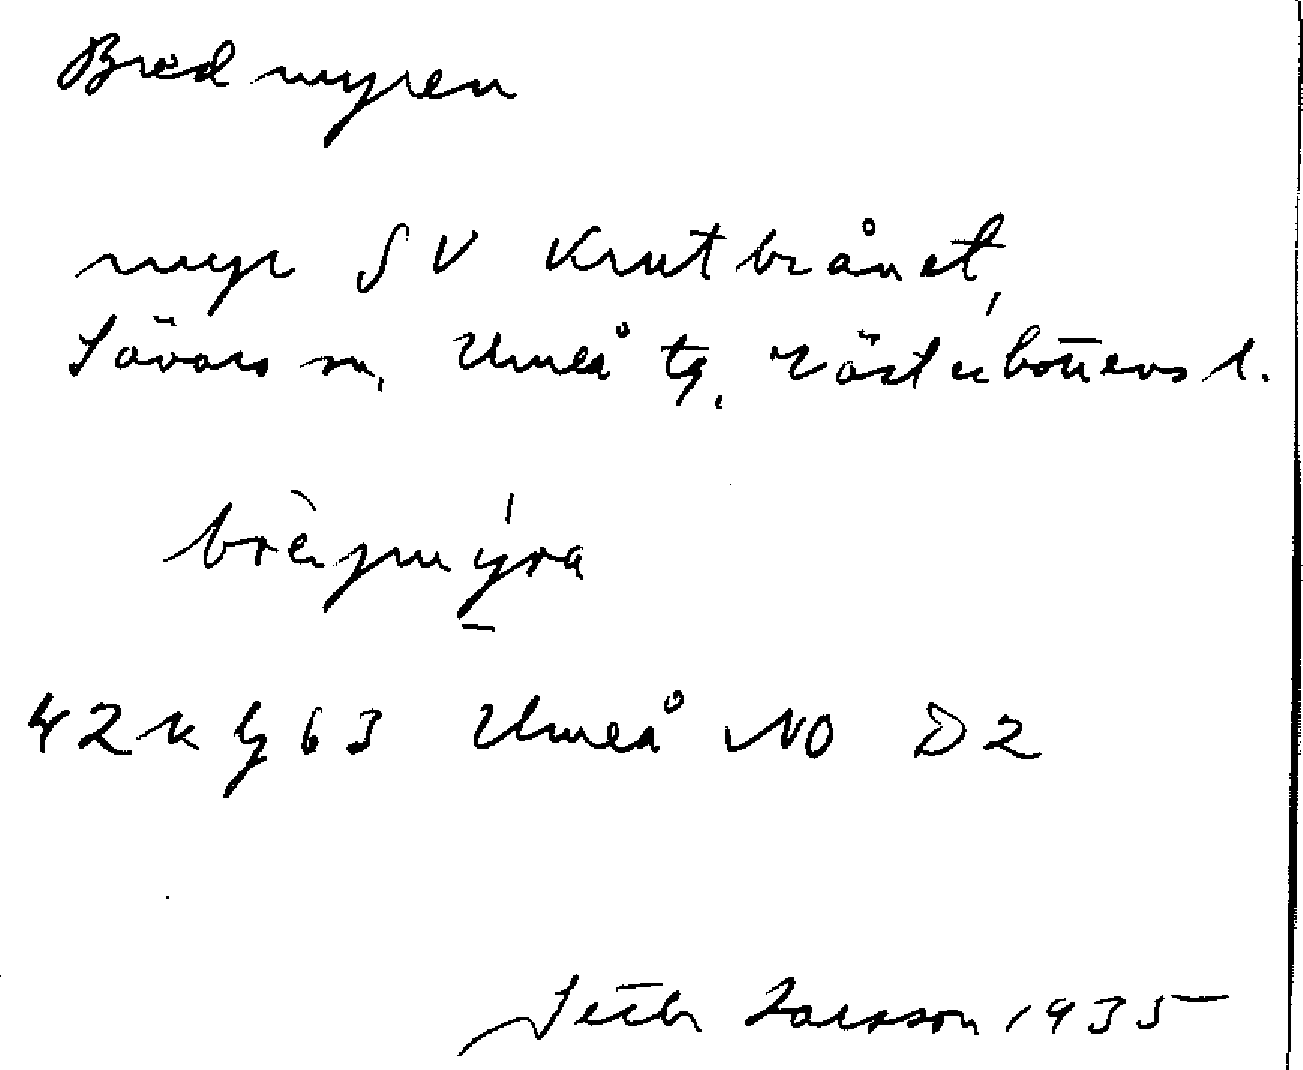 Bredmyren
myr SV Krutbrånet,
Sävars sn, Umeå tg, Västerbottens l.
42 k Lg 63 Umeå NO D2
Seth Larsson 1935